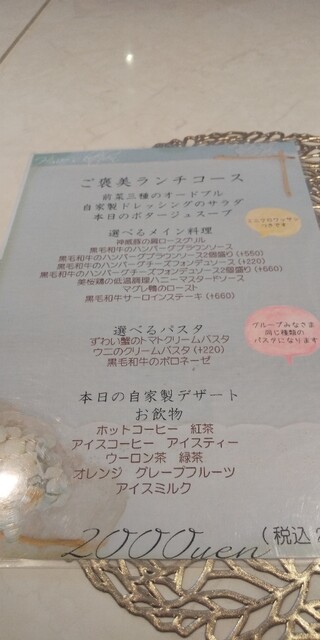 ご褒美ランチコース
前菜三種のオードブル
自家製ドレッシングのサラダ
本日のポタージュスープ
選べるメイン料理
神威豚の肩ロースグリル
黒毛和牛のハンバーグブラウンソース
黒毛和牛のハンバーグブラウンソース2個盛り (+550)
黒毛和牛のハンバーグチーズフォンデュソース (+220)
黒毛和牛のハンバーグチーズフォンデュソース2個盛り (+660)
美桜鶏の低温調理ハニーマスタードソース
マグレ鴨のロースト
黒毛和牛サーロインステーキ (+660)
選べるパスタ
ずわい蟹のトマトクリームパスタ
ウニのクリームパスタ (+220)
黒毛和牛のボロネーゼ
グループみなさま
同じ種類の
パスタになります
本日の自家製デザート
お飲物
ホットコーヒー 紅茶
アイスコーヒー アイスティー
ウーロン茶 緑茶
オレンジ グレープフルーツ
アイスミルク
2000yen
(税込